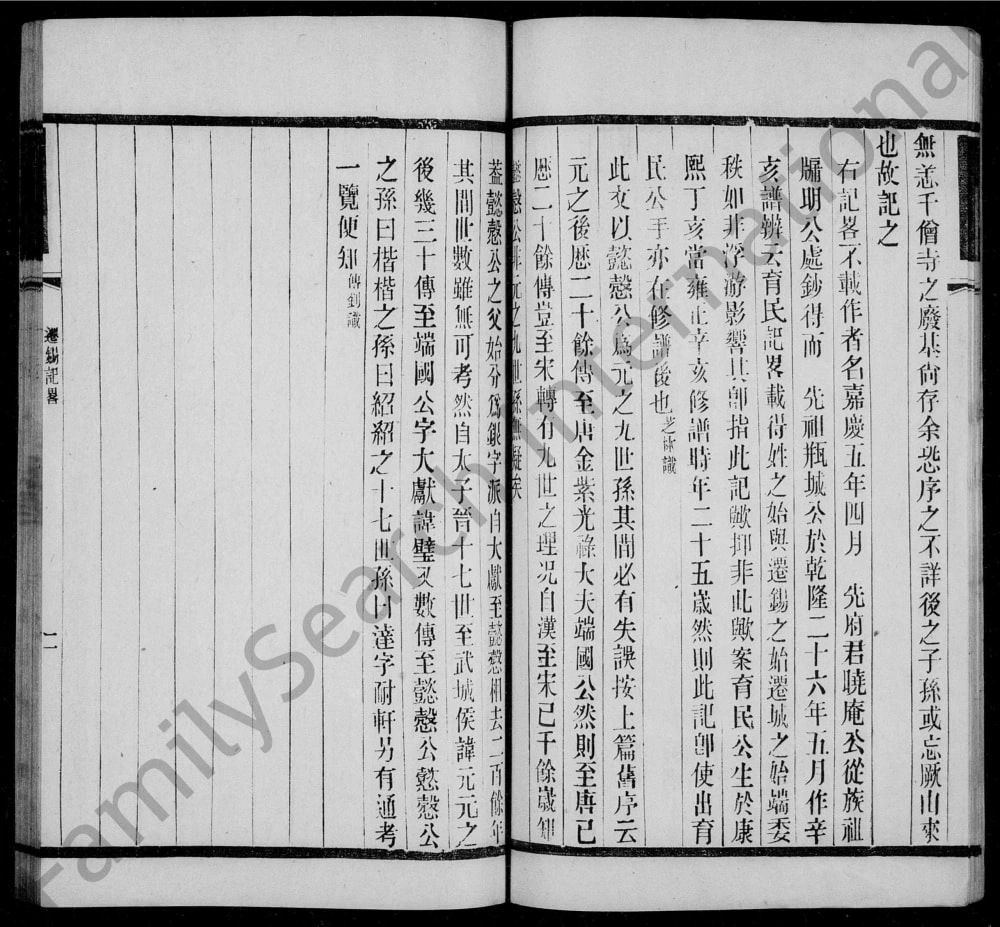 無恙千僧寺之廢基尚存余恐序之不詳後之子孫或忘厥由來
也故記之
右記畧不載作者名嘉慶五年四月　先府君曉庵公從族祖
牖明公處鈔得而　先祖瓶城公於乾隆二十六年五月作辛
亥譜辨云育民記畧載得姓之始與遷錫之始遷城之始端委
秩如非浮游影響其卽指此記歟抑非此歟案育民公生於康
熙丁亥當雍正辛亥修譜時年二十五歲然則此記卽使出育
民公手亦在修譜後也芝林識
此文以懿愨公爲元之九世孫其間必有失誤按上篇舊序云
元之後歴二十餘傳至唐金紫光祿大夫端國公然則至唐已
歴二十餘傳豈至宋轉有九世之理况自漢至宋已千餘歲知
懿愨公非元之九世孫無疑矣
葢懿愨公之父始分爲錶字派自大獻至懿愨相去二百餘年
其間世數雖無可考然自太子晉十七世至武城侯諱元元之
後幾三十傳至端國公字大獻諱璧又數傳至懿愨公懿愨公
之孫曰楷楷之孫曰紹紹之十七世孫曰達字耐軒另有通考
一覽便知傳釗識
遷錫記畧
二
FamilySearch International